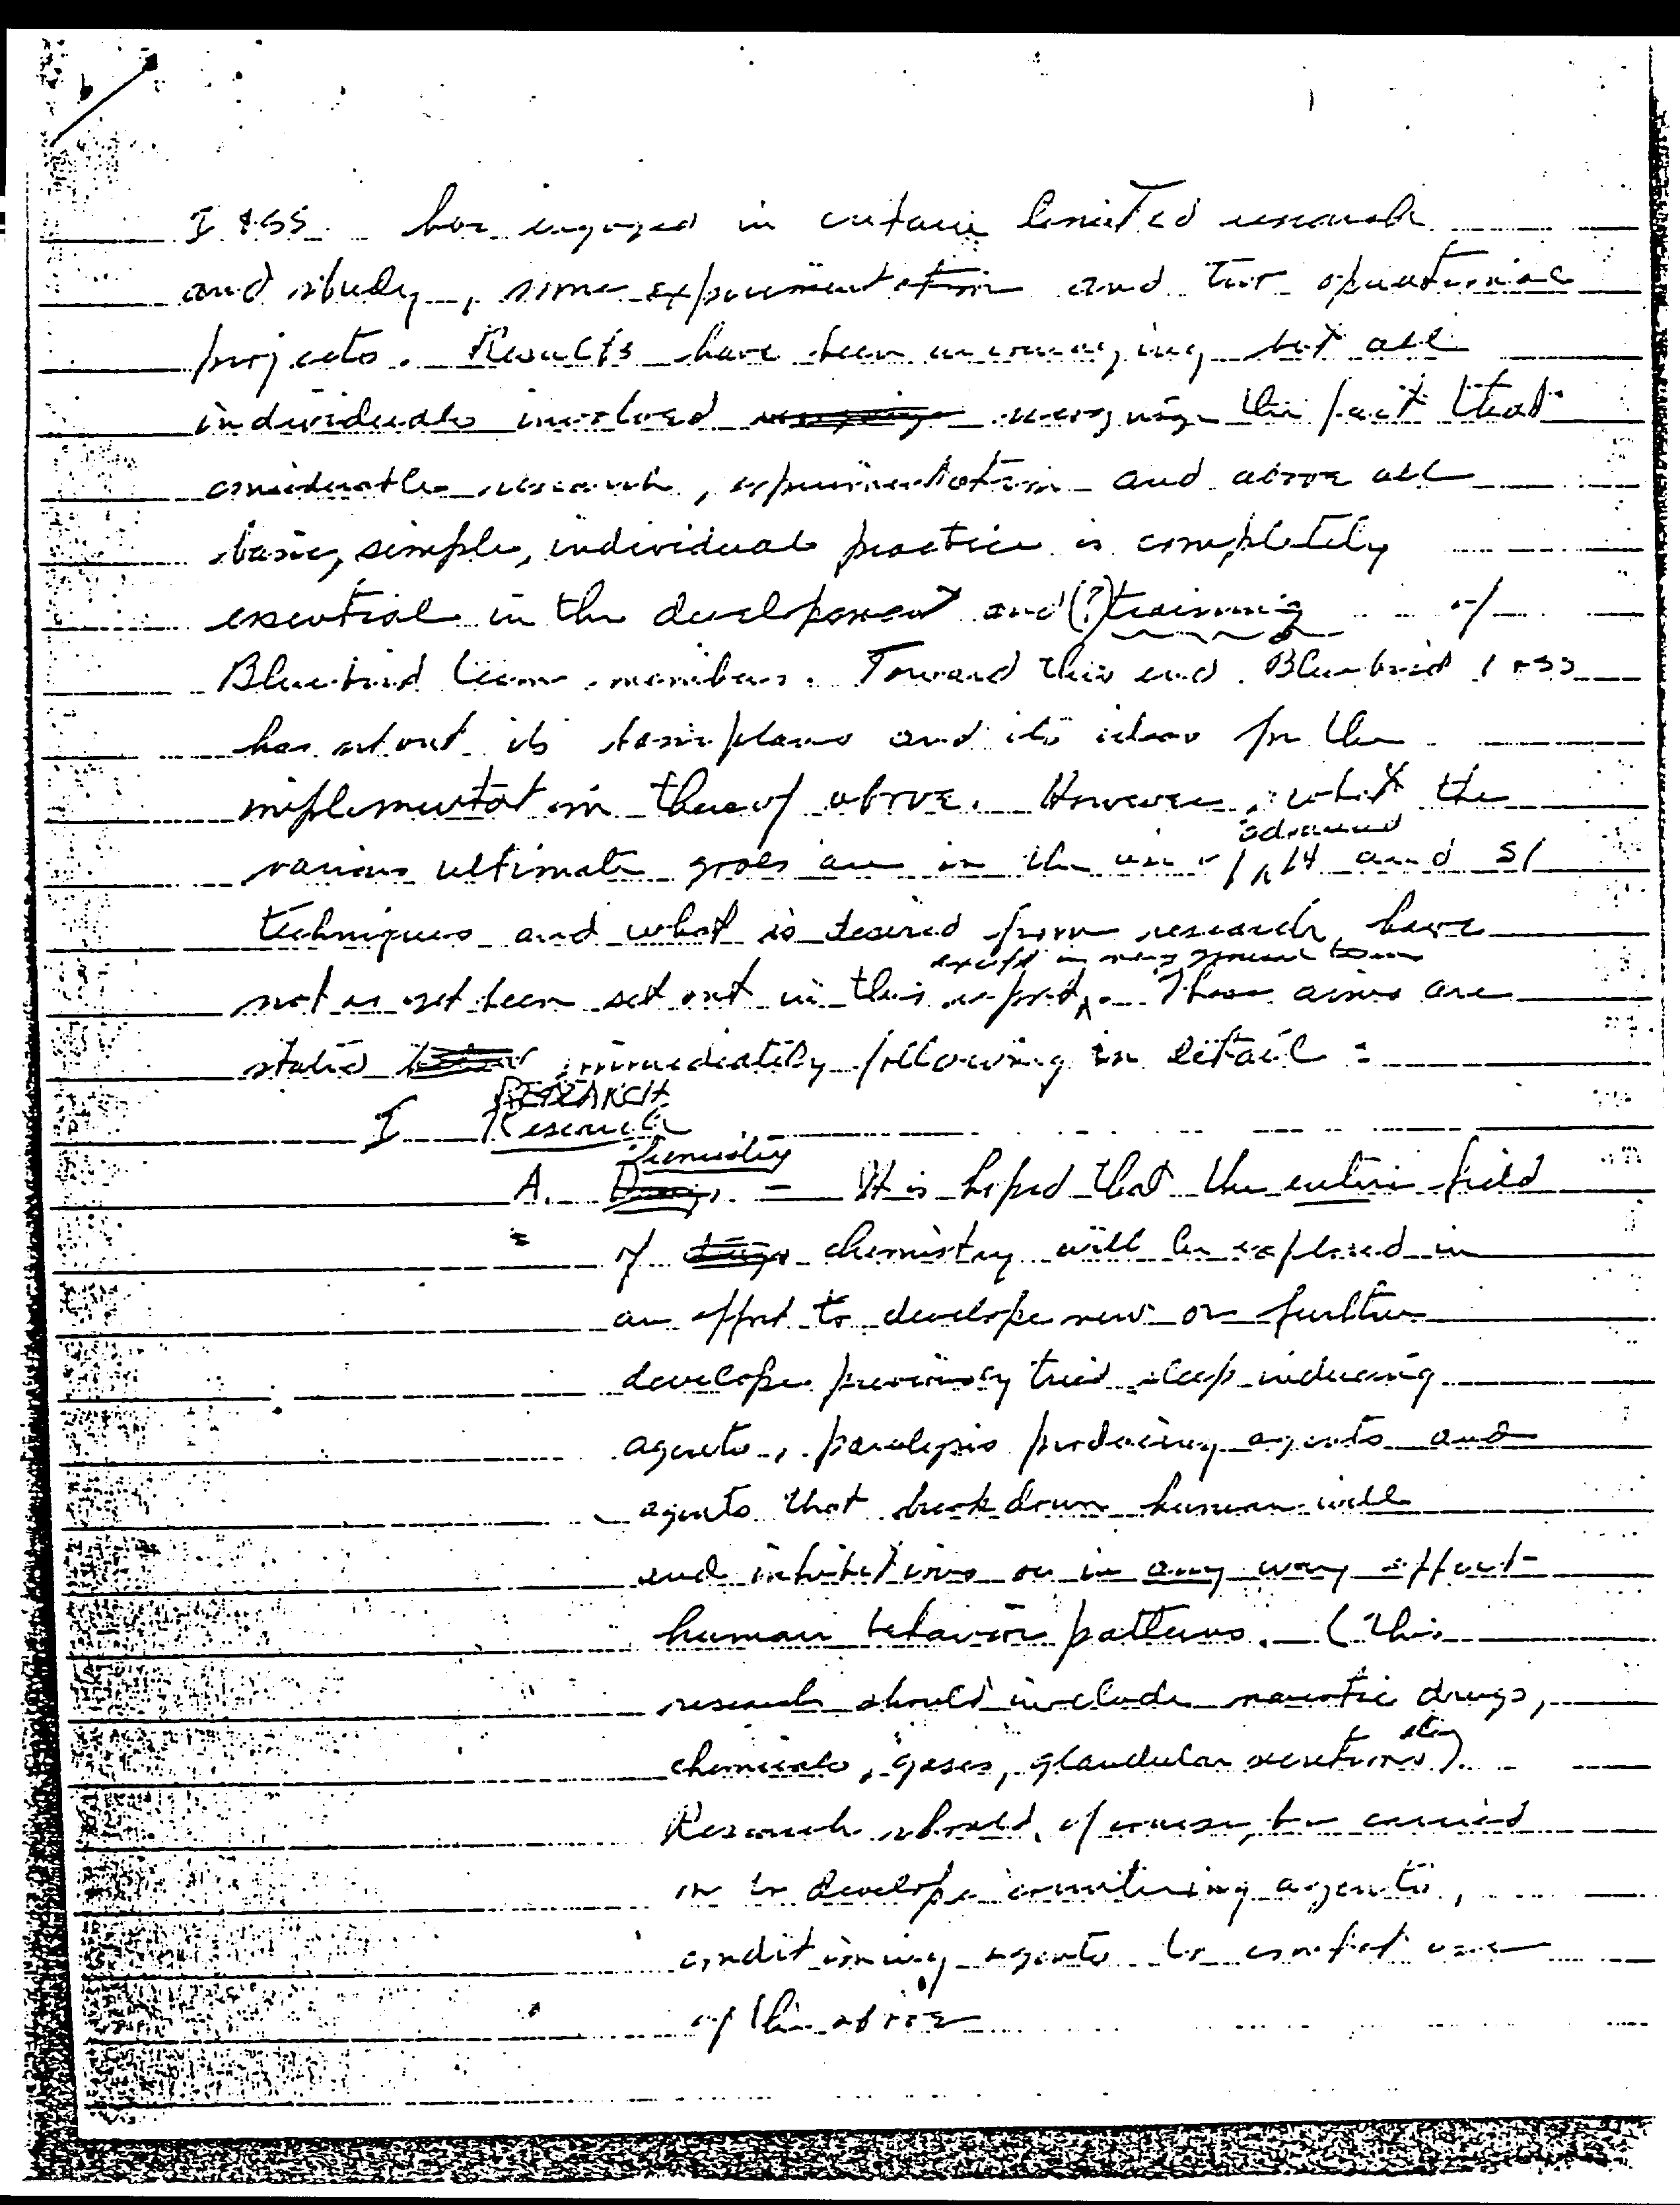 I & SS has engaged in certain limited research
and study, some experimentation and two operational
projects. Results have been encouraging but all
individuals involved recognize the fact that
considerable research, experimentation and above all
basic, simple, individual practice is completely
essential in the development and (?) training of
Bluebird team members. Toward this end Bluebird I & SS
has set out its basic plans and its ideas for the
implementation thereof above. However, what the
various ultimate goals are in the use of advanced H and SI
techniques and what is desired from research have
not as yet been set out in this report except in very general terms. These aims are
stated immediately following in detail:
RESEARCH
I Research
Chemistry
A. - It is hoped that the entire field
of chemistry will be explored in
an effort to develope new or further
develope previously tried sleep inducing
agents, paralysis producing agents and
agents that break down human will
and inhibitions or in any way effect
human behavior patterns. (This
research should include narcotic drugs,
chemicals, gases, glandular secretions etc)
Research should, of course, be carried
on to develope counteracting agents,
conditioning agents to combat use
of the above